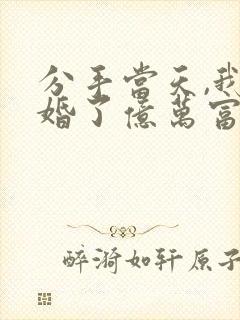 分手當天,我
婚了億萬富
醉漪如轩原子